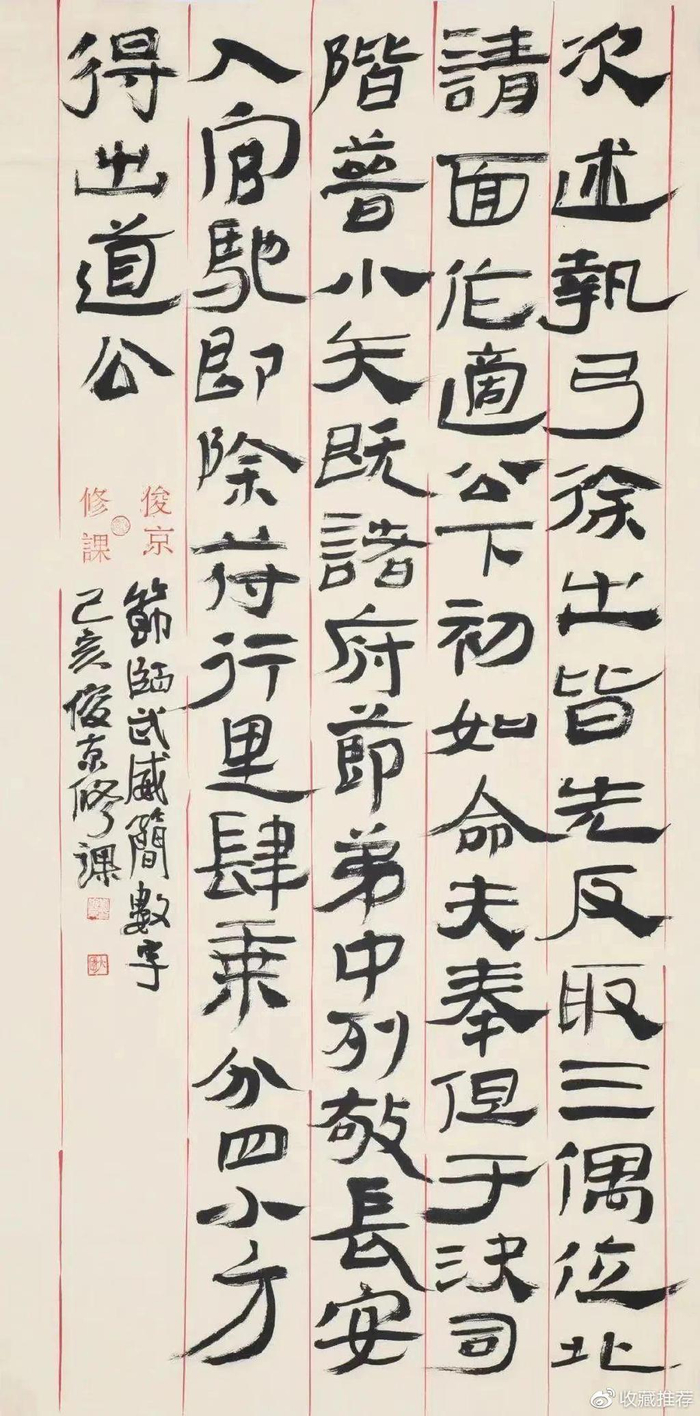 次述執弓徐出皆先反取三偶位北
請面作適公下初如命夫奉但于決司
階普小矢既諸府節弟中列敬長安
入官馳即除符行里肆乘分四小方
得出道公
俊京
修課
節臨武威簡數字
己亥俊京修課
收藏推荐